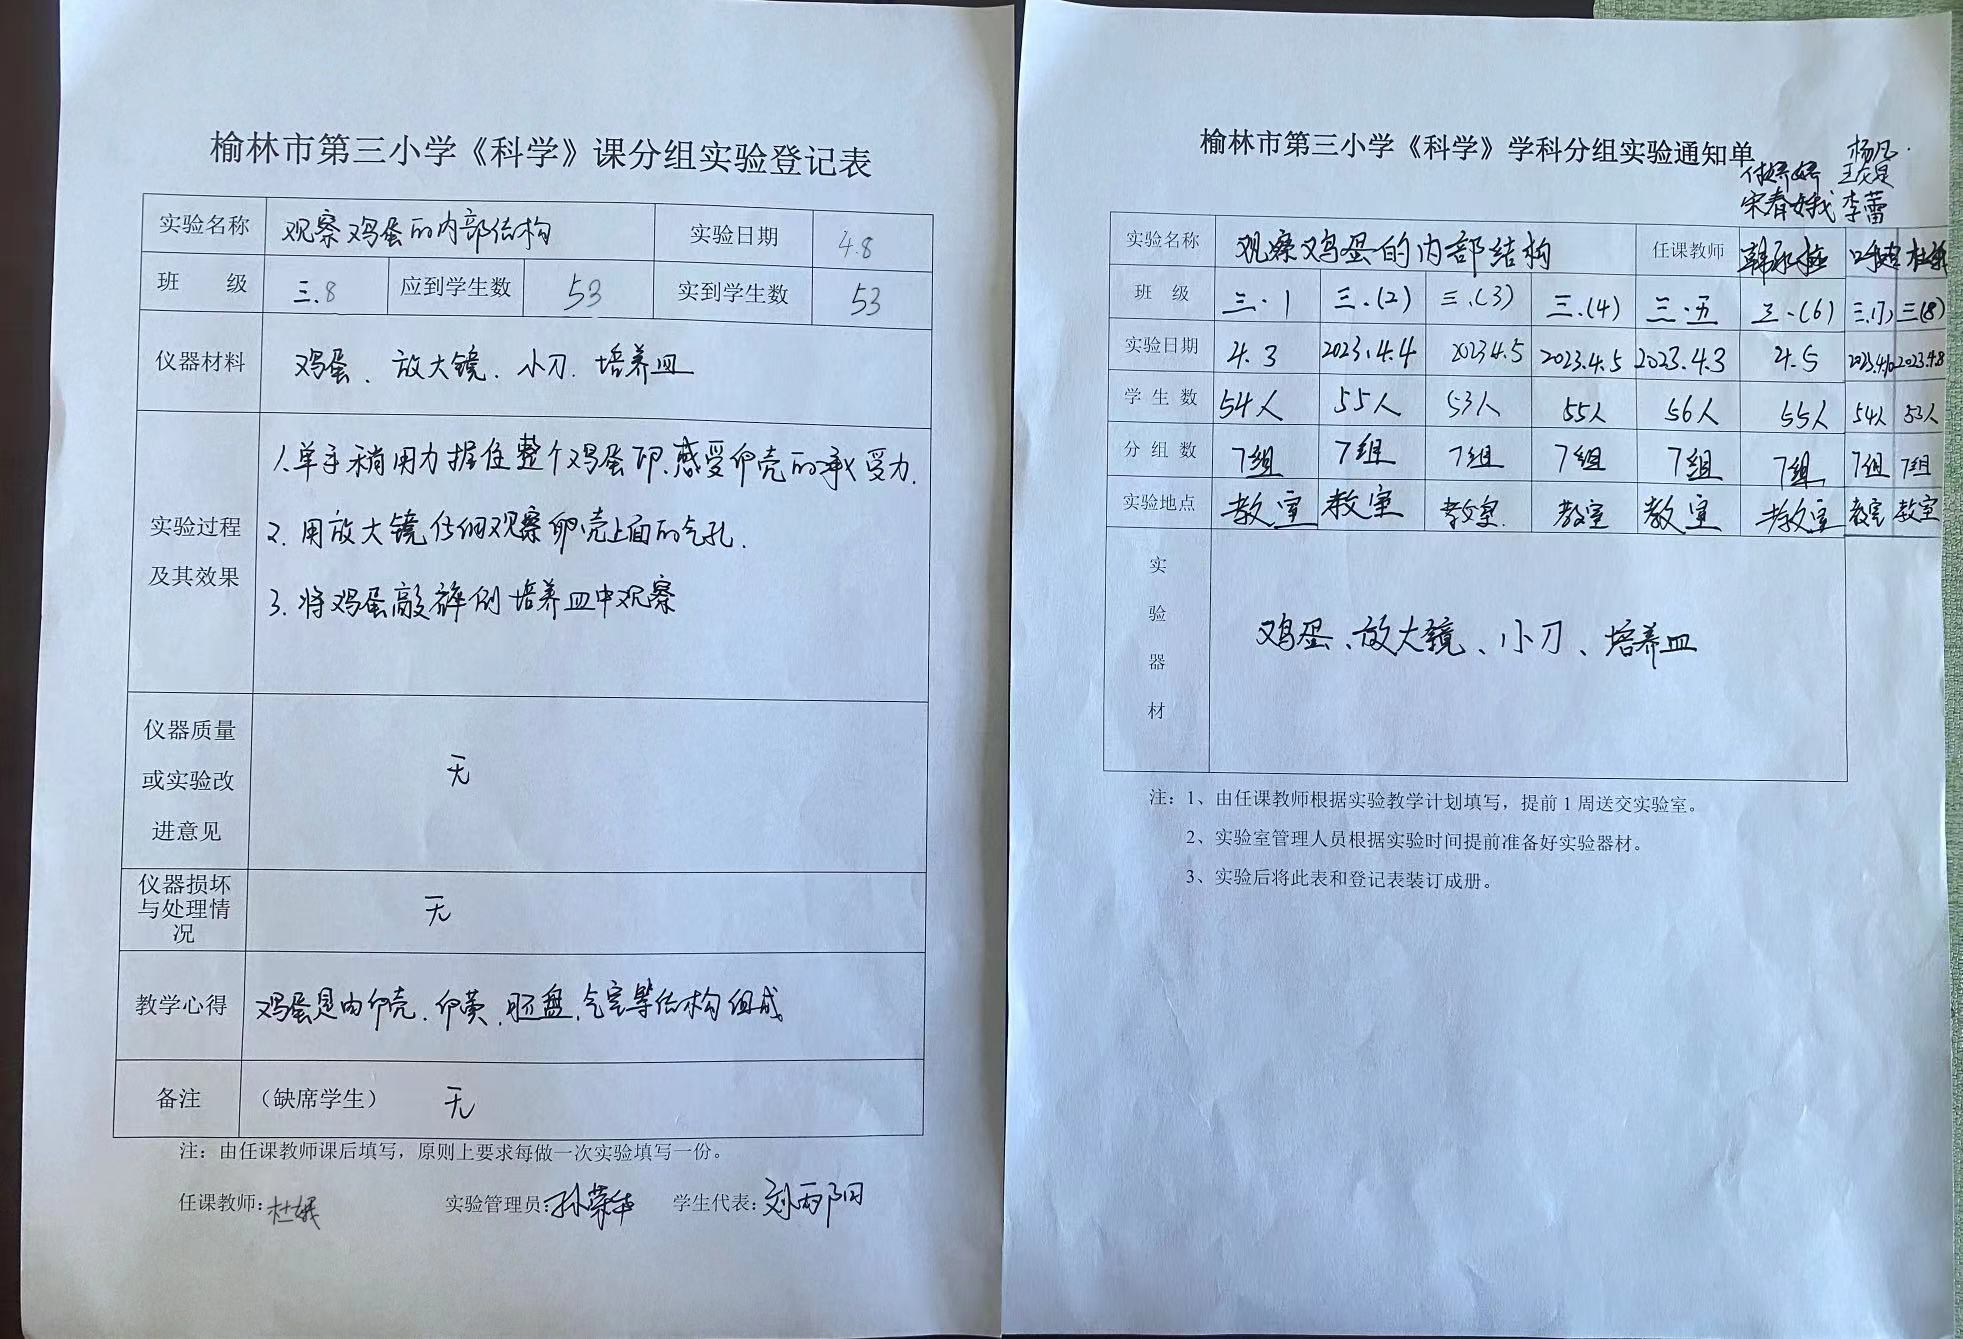 榆林市第三小学《科学》课分组实验登记表
实验名称 观察鸡蛋的内部结构 实验日期 4.8
班 级 三.8 应到学生数 53 实到学生数 53
仪器材料 鸡蛋、放大镜、小刀、培养皿
实验过程
及其效果
1.单手稍用力握住整个鸡蛋即,感受卵壳的承受力.
2.用放大镜仔细观察卵壳上面的气孔.
3.将鸡蛋敲碎倒培养皿中观察
仪器质量
或实验改
进意见
无
仪器损坏
与处理情
况
无
教学心得 鸡蛋是由卵壳、卵黄、胚盘、气室等结构组成
备注 (缺席学生) 无
注:由任课教师课后填写,原则上要求每做一次实验填写一份。
任课教师:杜娥 实验管理员:孙荣华 学生代表:刘雨阳
榆林市第三小学《科学》学科分组实验通知单
杨凡
付婷婷
宋春娥 李蕾
实验名称 观察鸡蛋的内部结构 任课教师 韩永梅 杜娥
班 级 三.1 三.(2) 三.(3) 三.(4) 三.五 三.(6) 三.(7) 三(8)
实验日期 4.3 2023.4.4 2023.4.5 2023.4.5 2023.4.3 4.5 2023.4.10 2023.4.8
学 生 数 54人 55人 53人 55人 56人 55人 54人 53人
分 组 数 7组 7组 7组 7组 7组 7组 7组 7组
实验地点 教室 教室 教室 教室 教室 教室 教室 教室
实
验
器
材
鸡蛋、放大镜、小刀、培养皿
注:1、由任课教师根据实验教学计划填写,提前1周送交实验室。
2、实验室管理人员根据实验时间提前准备好实验器材。
3、实验后将此表和登记表装订成册。